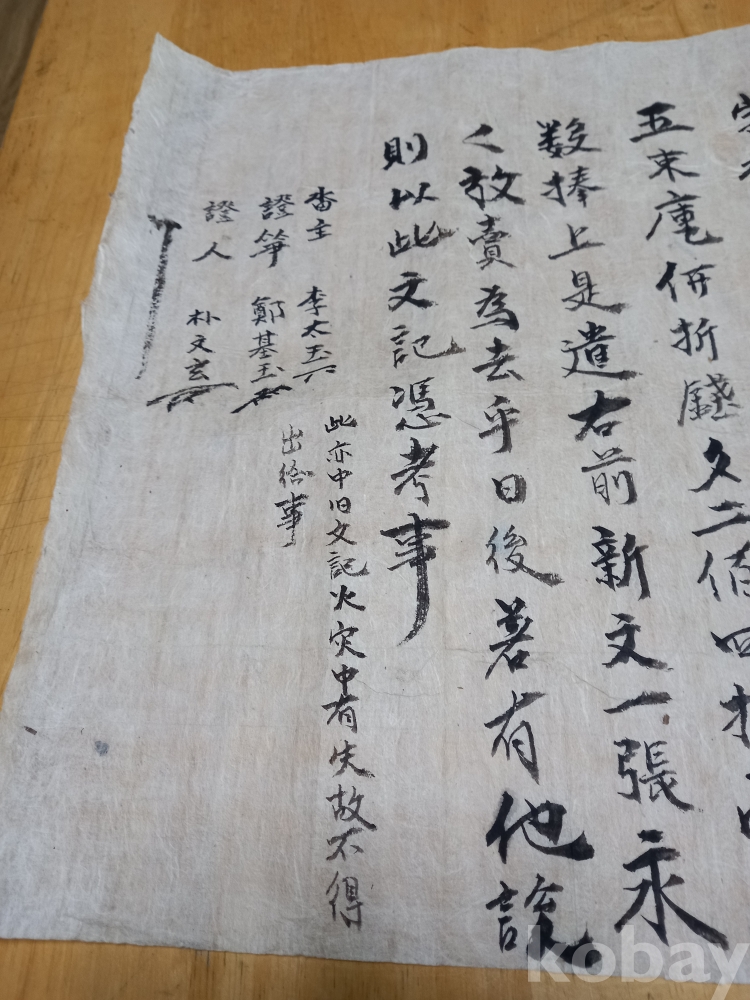 五束庫㐣折錢文二佰四拾
数捧上是遣右前新文一張永
〱放賣為去乎日後若有他談
則以此文記憑考事
畓主 李太玉
此亦中旧文記火灾中有失故不得
出給事
證筆 鄭基玉
證人 朴文玄
kobay